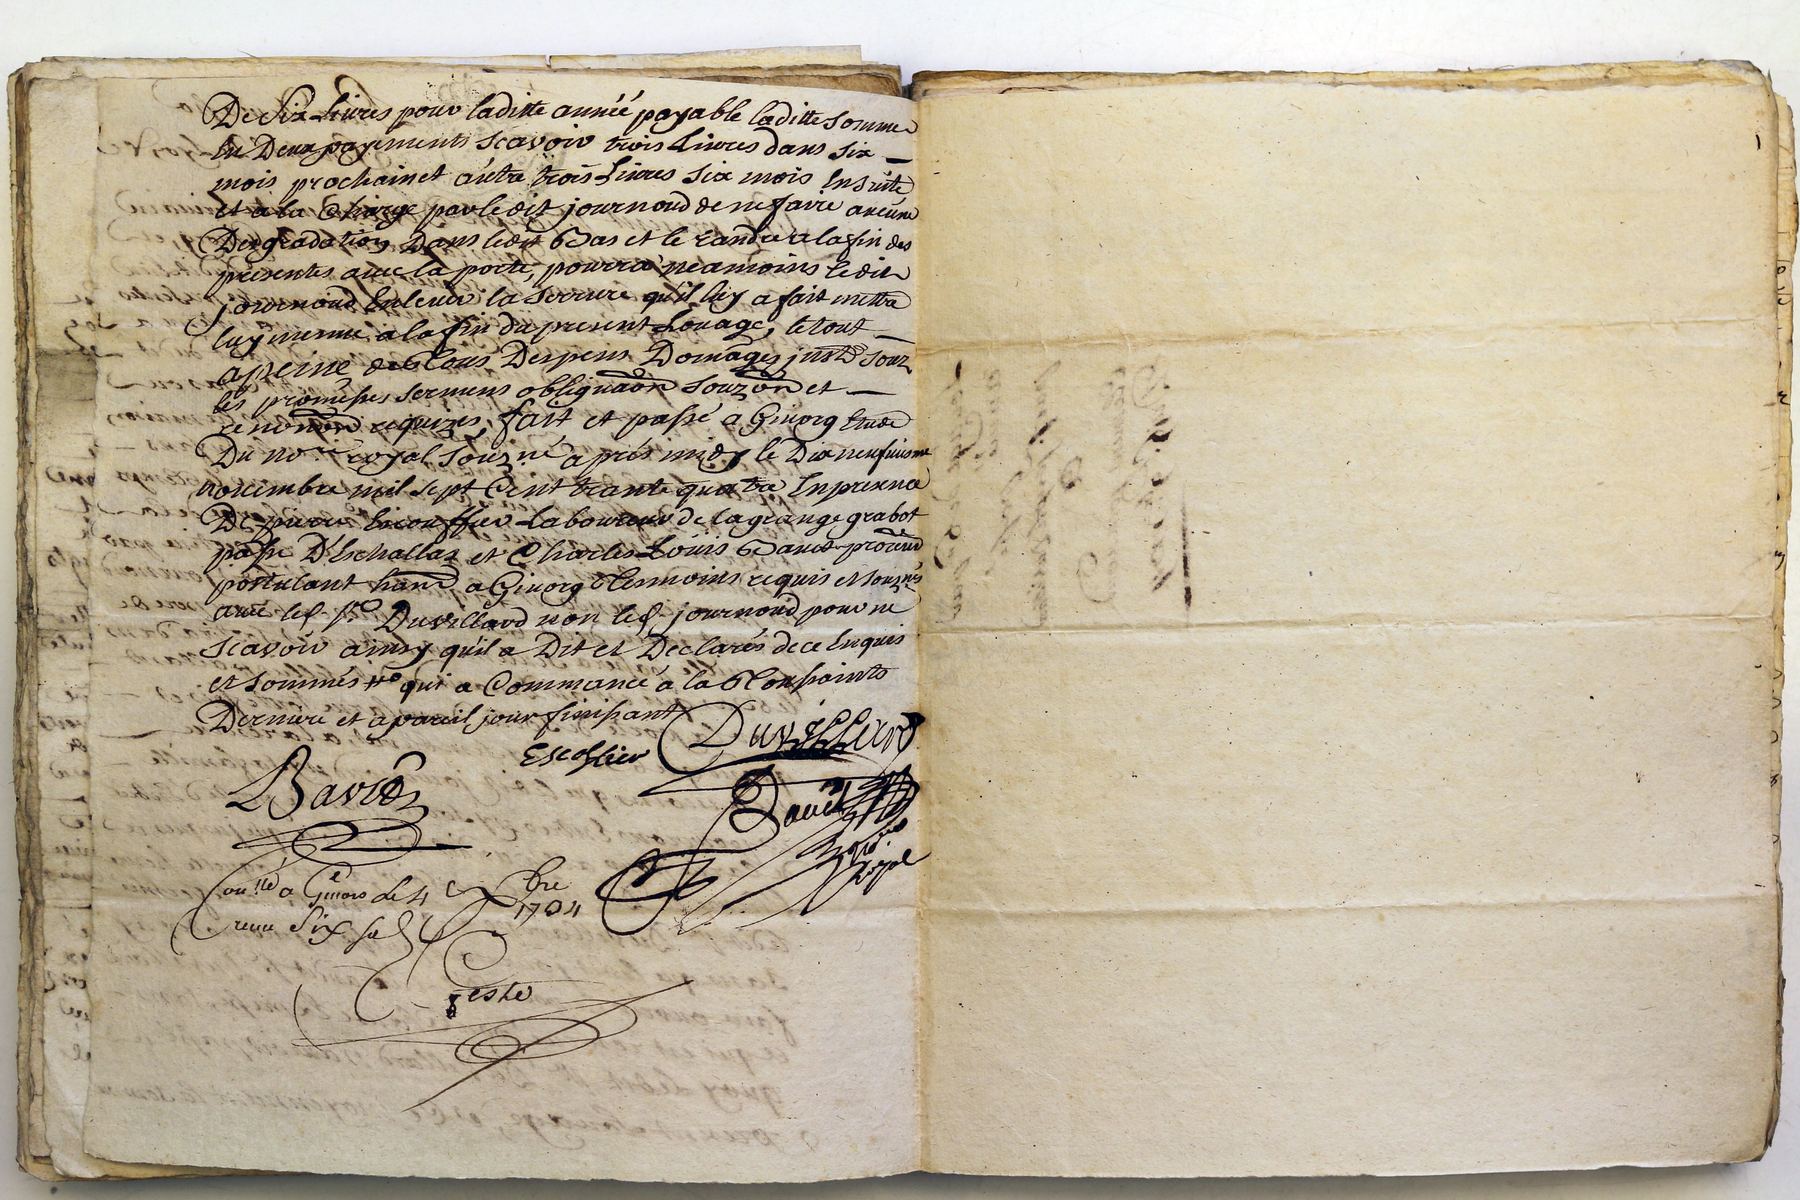 De Six Livres pour laditte année payable laditte somme
en Deux payements scavoir trois Livres dans six
mois prochain et autre trois Livres six mois Ensuite
et a la Charge par ledit journoud de ne faire aucune
Degradation Dans ledit Bas et le randre a la fin des
presentes avec la porte, pourra neamoins ledit
journoud Enlever la serrure qu'il luy a fait mettre
luy meme a la fin du present Louage, le tout
a peine de tous Despens Domages
les promesses sermens obligãon et
renonõn requizes, fait et passé a Givorg Etude
Du no.re royal souz.né aprés midy le Dixneufviesme
novembre mil sept Cent trante quatre En presence
De pierre Escouffier Laboureur de la grange grabot
pãsse D'Eschallas et Charles Loüis
postulant a Givorg temoins requis et souz.nés
avec led. s.r Duvillard non led. journoud pour ne
scavoir ainsy qu'il a Dit et Declarés de ce Enquis
et sommés qui a Commancé a la Toussaints
Derniere et a pareil jour finissant
Escoffier Duvillard
David
a Givors le 4 bre
1734
receu six
Teste
Royal